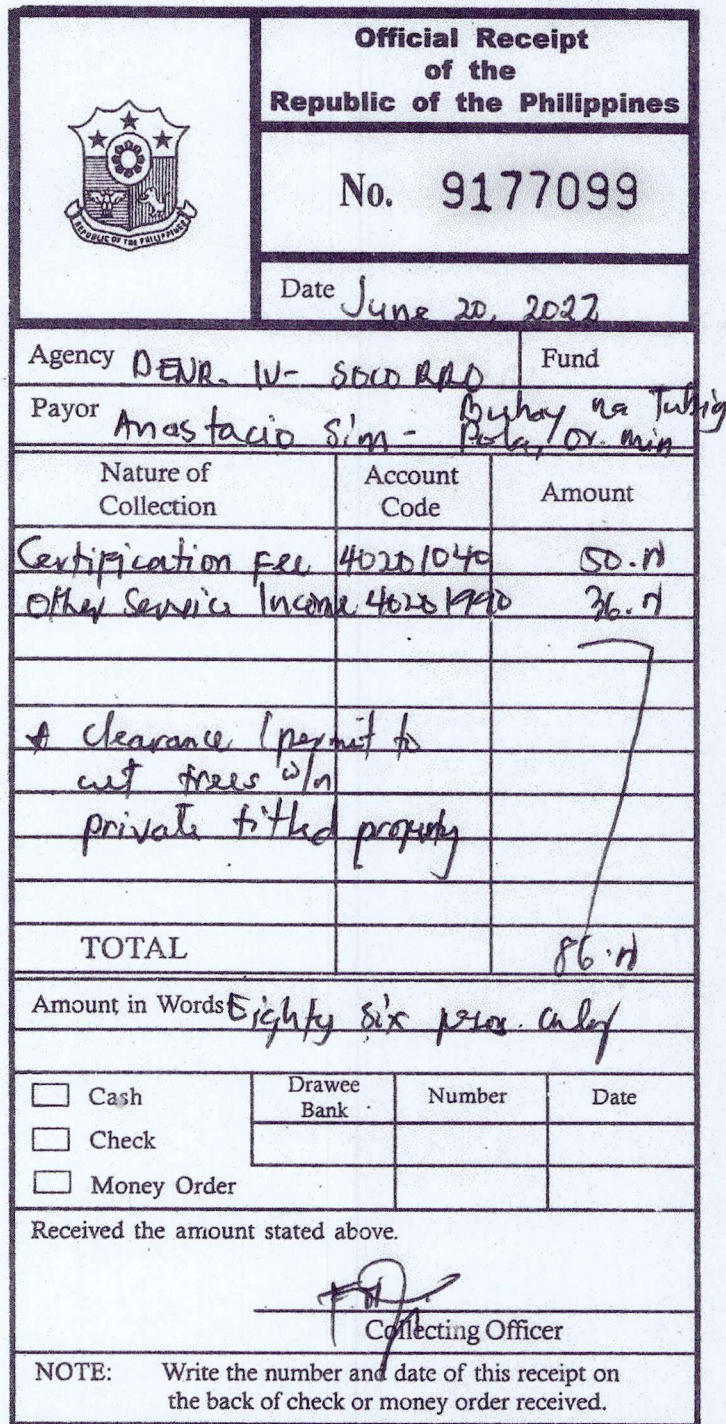 Official Receipt
of the
Republic of the Philippines
REPUBLIC OF THE PHILIPPINES
No. 9177099
Date June 20, 2022
Agency DENR. IV- SOCORRO Fund
Payor Anastacio Sim - Buhay na Tubig
Pola, Or. Min
Nature of Collection Account Code Amount
Certification Fee 40201040 50.
Other Service Income 40201990 36.
* clearance / permit to
cut trees w/n
private titled property
TOTAL 86.
Amount in Words Eighty Six pesos only
Cash Drawee Bank Number Date
Check
Money Order
Received the amount stated above.
Collecting Officer
NOTE: Write the number and date of this receipt on
the back of check or money order received.